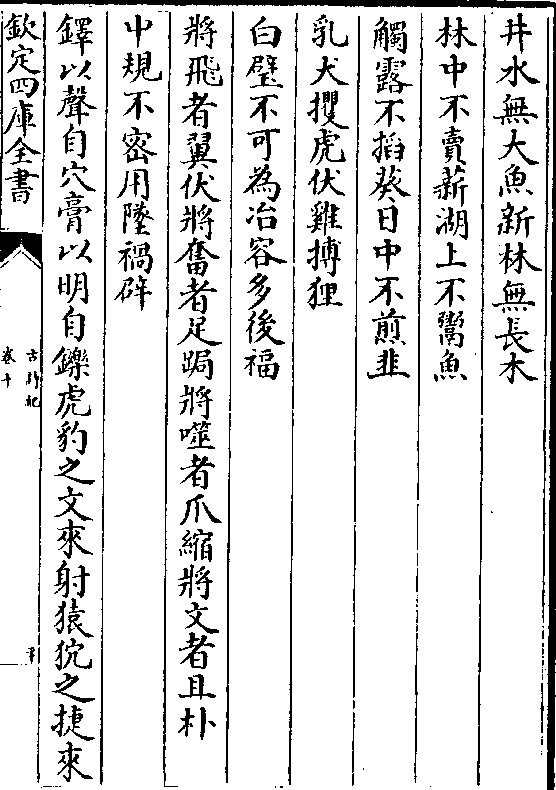 井水無大魚新林無長木
林中不賣薪湖上不鬻魚
觸露不掐葵日中不煎韭
乳犬攫虎伏雞搏狸
白璧不可為冶容多後福
將飛者翼伏將奮者足跼將噬者爪縮將文者且朴
中規不密用墜禍辟
鐸以聲自穴膏以明自鑠虎豹之文來射猿狖之捷來
欽定四庫全書
古詩紀
卷十